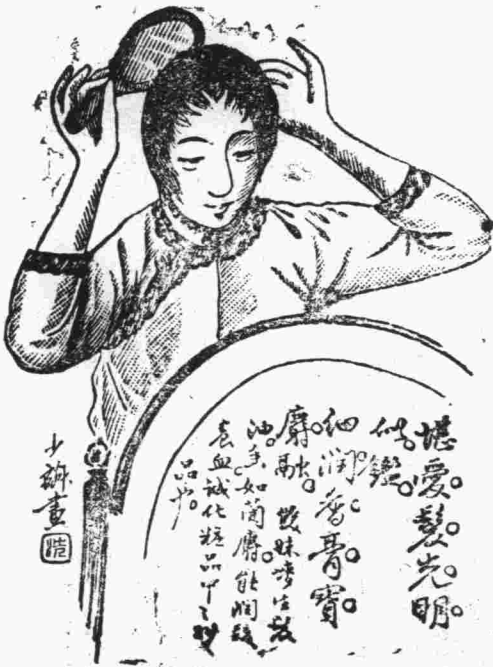 堪愛。髮。光。明。
似。鑑。
細潤。香。膏。寶。
麝。融。雙妹嘜生髮
油。香如蘭麝。能潤髮
養血誠化粧品中之妙
品也。
少 畫
浩